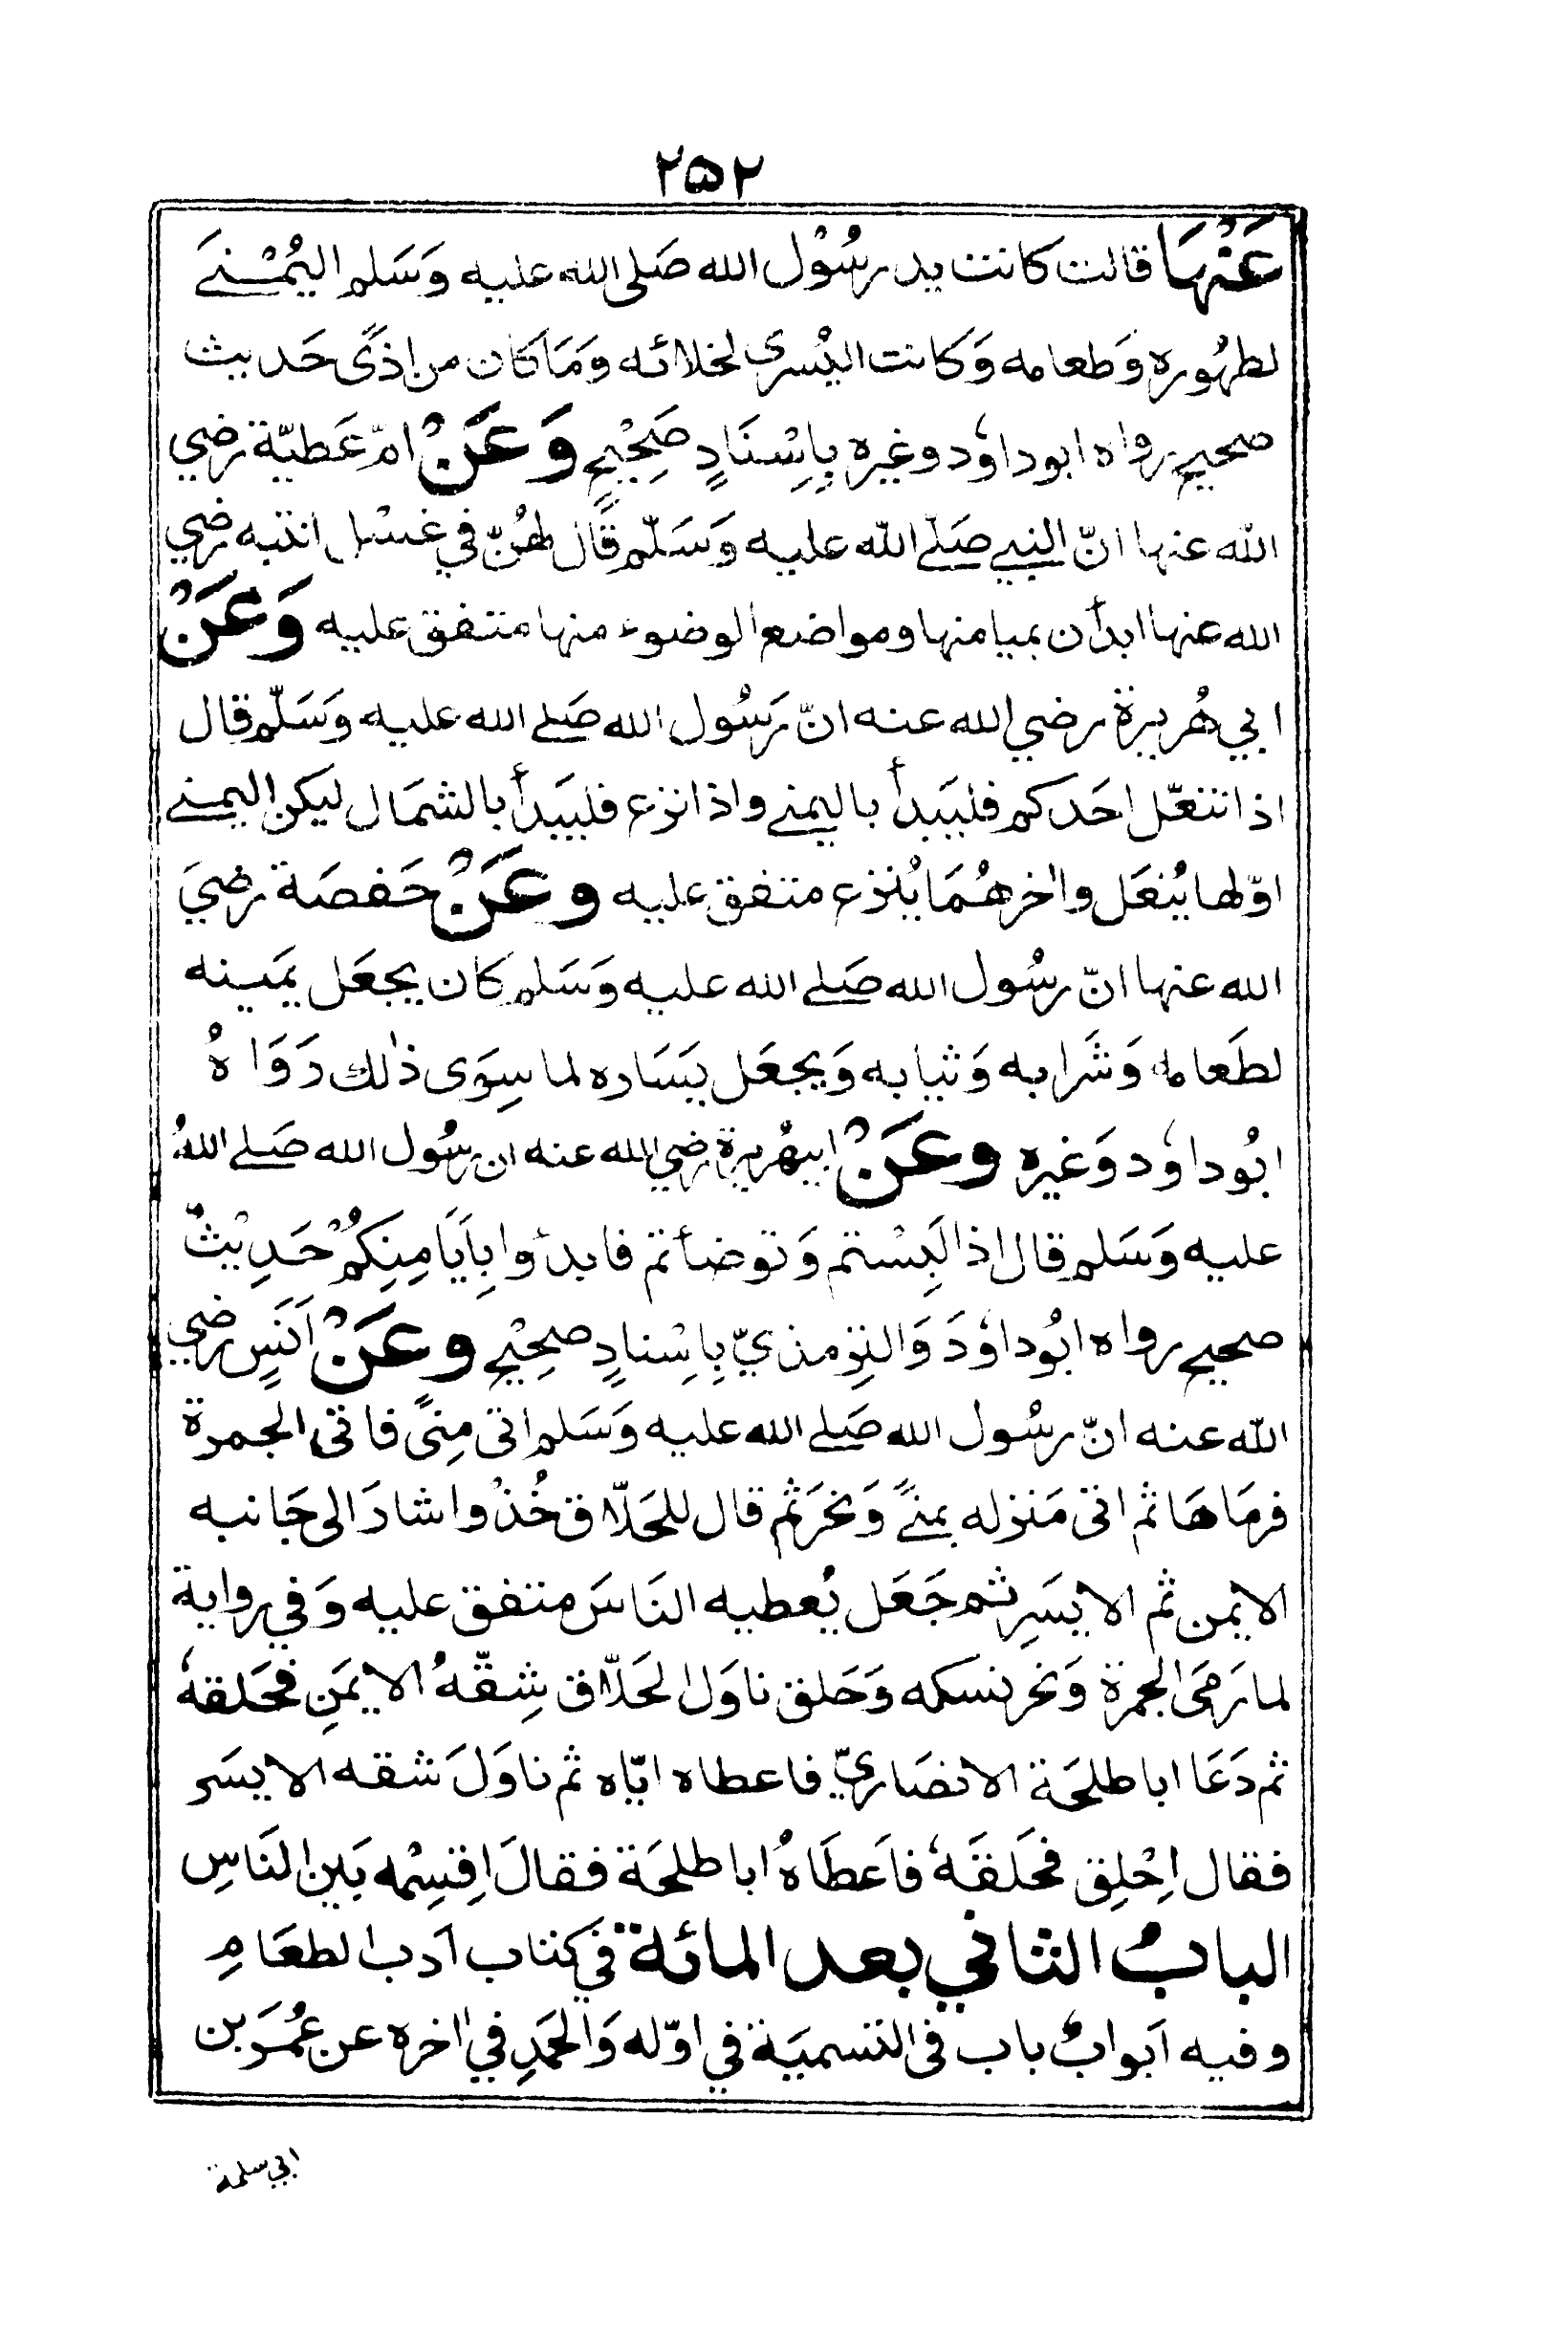 ۲۵۲
عَنْهَا قالت كانت يد رسُوْل الله صَلى الله عليه وَسَلم اليُمْنےَ
لطهُوره وَطعامه وَكانت اليُسرى لخلائه وَمَا كان من اذًى حَديث
صحيح رواه ابوداوٗد وغيره بِاِسْنَادٍ صَحِيْحٍ وَعَنْ امّ عَطيّة رضي
الله عنها انّ النبے صَلّے الله عليه وَسَلّم قَال لهُنّ في غسْل ابنته رضي
الله عنها ابدأن بميامنها ومواضع الوضوء منها متفق عليه وَعَنْ
ابي هُريرة رضي الله عنه انّ رَسُول الله صَلے الله عليه وَسَلّم قال
اذا انتعّل احَدكم فليَبدأ باليمنے واذا نزع فليبَدأ بالشمَال ليكن اليمنے
اوّلها يُنعَل واٰخرهُمَا يُنزع متفق عليه وعَنْ حَفصَة رضيَ
الله عنها انّ رسُول الله صَلے الله عليه وَسَلم كان يجعَل يمَينه
لطَعامه وَشَرابه وَثيابه وَيجعَل يَسَاره لما سِوَى ذٰلك رَوَاهُ
ابُوداوٗد وَغيره وعَنْ ابيهُريرة رضي الله عنه ان رسُول الله صَلے اللهُ
عليه وَسَلم قال اذا لَبِسْتم وَتوضأتم فابدءُوا بِاَيَامِنِكُمْ حَدِيْثٌ
صحيح رواه ابُوداوٗدَ وَالتِّرمذيّ بِاِسْنادٍ صحِيْحٍ وعَنْ اَنَسٍ رضي
الله عنه انّ رسُول الله صَلے الله عليه وَسَلم اتى مِنًى فاتى الجمرة
فرمَاهَا ثم اتى مَنزله بمنےً وَنحَرَ ثم قال للحَلّاق خُذْ واشارَ الى جَانبه
الايمن ثم الايسَرِ ثم جَعَل يُعطيه النَاسَ متفق عليه وَفي رواية
لما رَمَى الجمرة وَنحر نسكه وَحَلق ناوَل الحَلّاق شِقّهُ الايمَنِ فحَلقهٗ
ثم دَعَا ابا طلحَة الانصَاريّ فاعطاه ايّاه ثم ناوَلَ شقه الايسَر
فقال اِحْلِق فحَلَقَهٗ فاَعطَاهُ ابا طلحَة فقالَ اِقسِمْه بَين النَاسِ
البابُ الثاني بعد المائة في كتاب اَدب الطعَامِ
وفيه اَبوابٌ باب فى التسميَة في اوّله وَالحمَدِ في اٰخره عن عُمَرَ بن
ابي سلمة